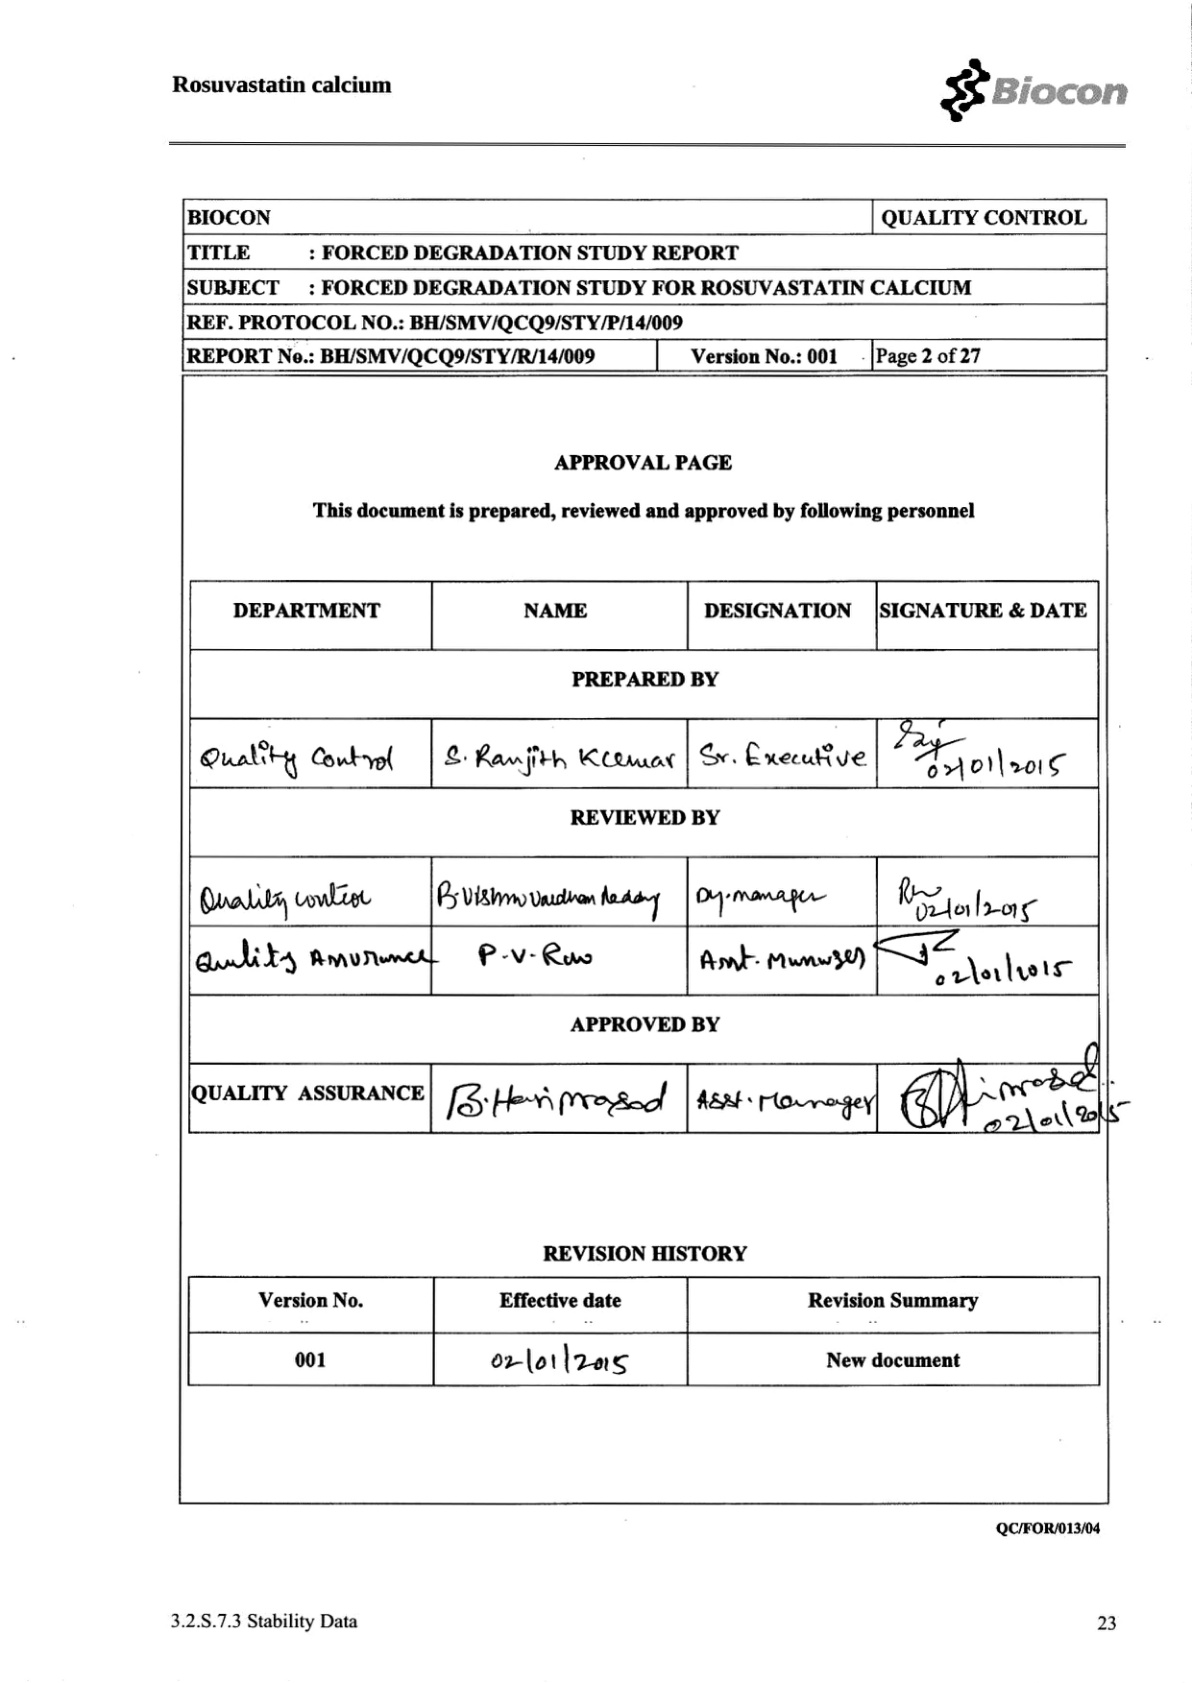 Rosuvastatin calcium
Biocon
BIOCON QUALITY CONTROL
TITLE : FORCED DEGRADATION STUDY REPORT
SUBJECT : FORCED DEGRADATION STUDY FOR ROSUVASTATIN CALCIUM
REF. PROTOCOL NO.: BH/SMV/QCQ9/STY/P/14/009
REPORT No.: BH/SMV/QCQ9/STY/R/14/009 Version No.: 001 Page 2 of 27
APPROVAL PAGE
This document is prepared, reviewed and approved by following personnel
DEPARTMENT NAME DESIGNATION SIGNATURE & DATE
PREPARED BY
Quality Control S. Ranjith Kumar Sr. Executive
02/01/2015
REVIEWED BY
Quality control B. Vishnu Vardhan Reddy Dy. manager
02/01/2015
Quality Assurance P.V. Rao Asst. Manager
02/01/2015
APPROVED BY
QUALITY ASSURANCE B. Hariprasad Asst. Manager
02/01/2015
REVISION HISTORY
Version No. Effective date Revision Summary
001 02/01/2015 New document
QC/FOR/013/04
3.2.S.7.3 Stability Data 23